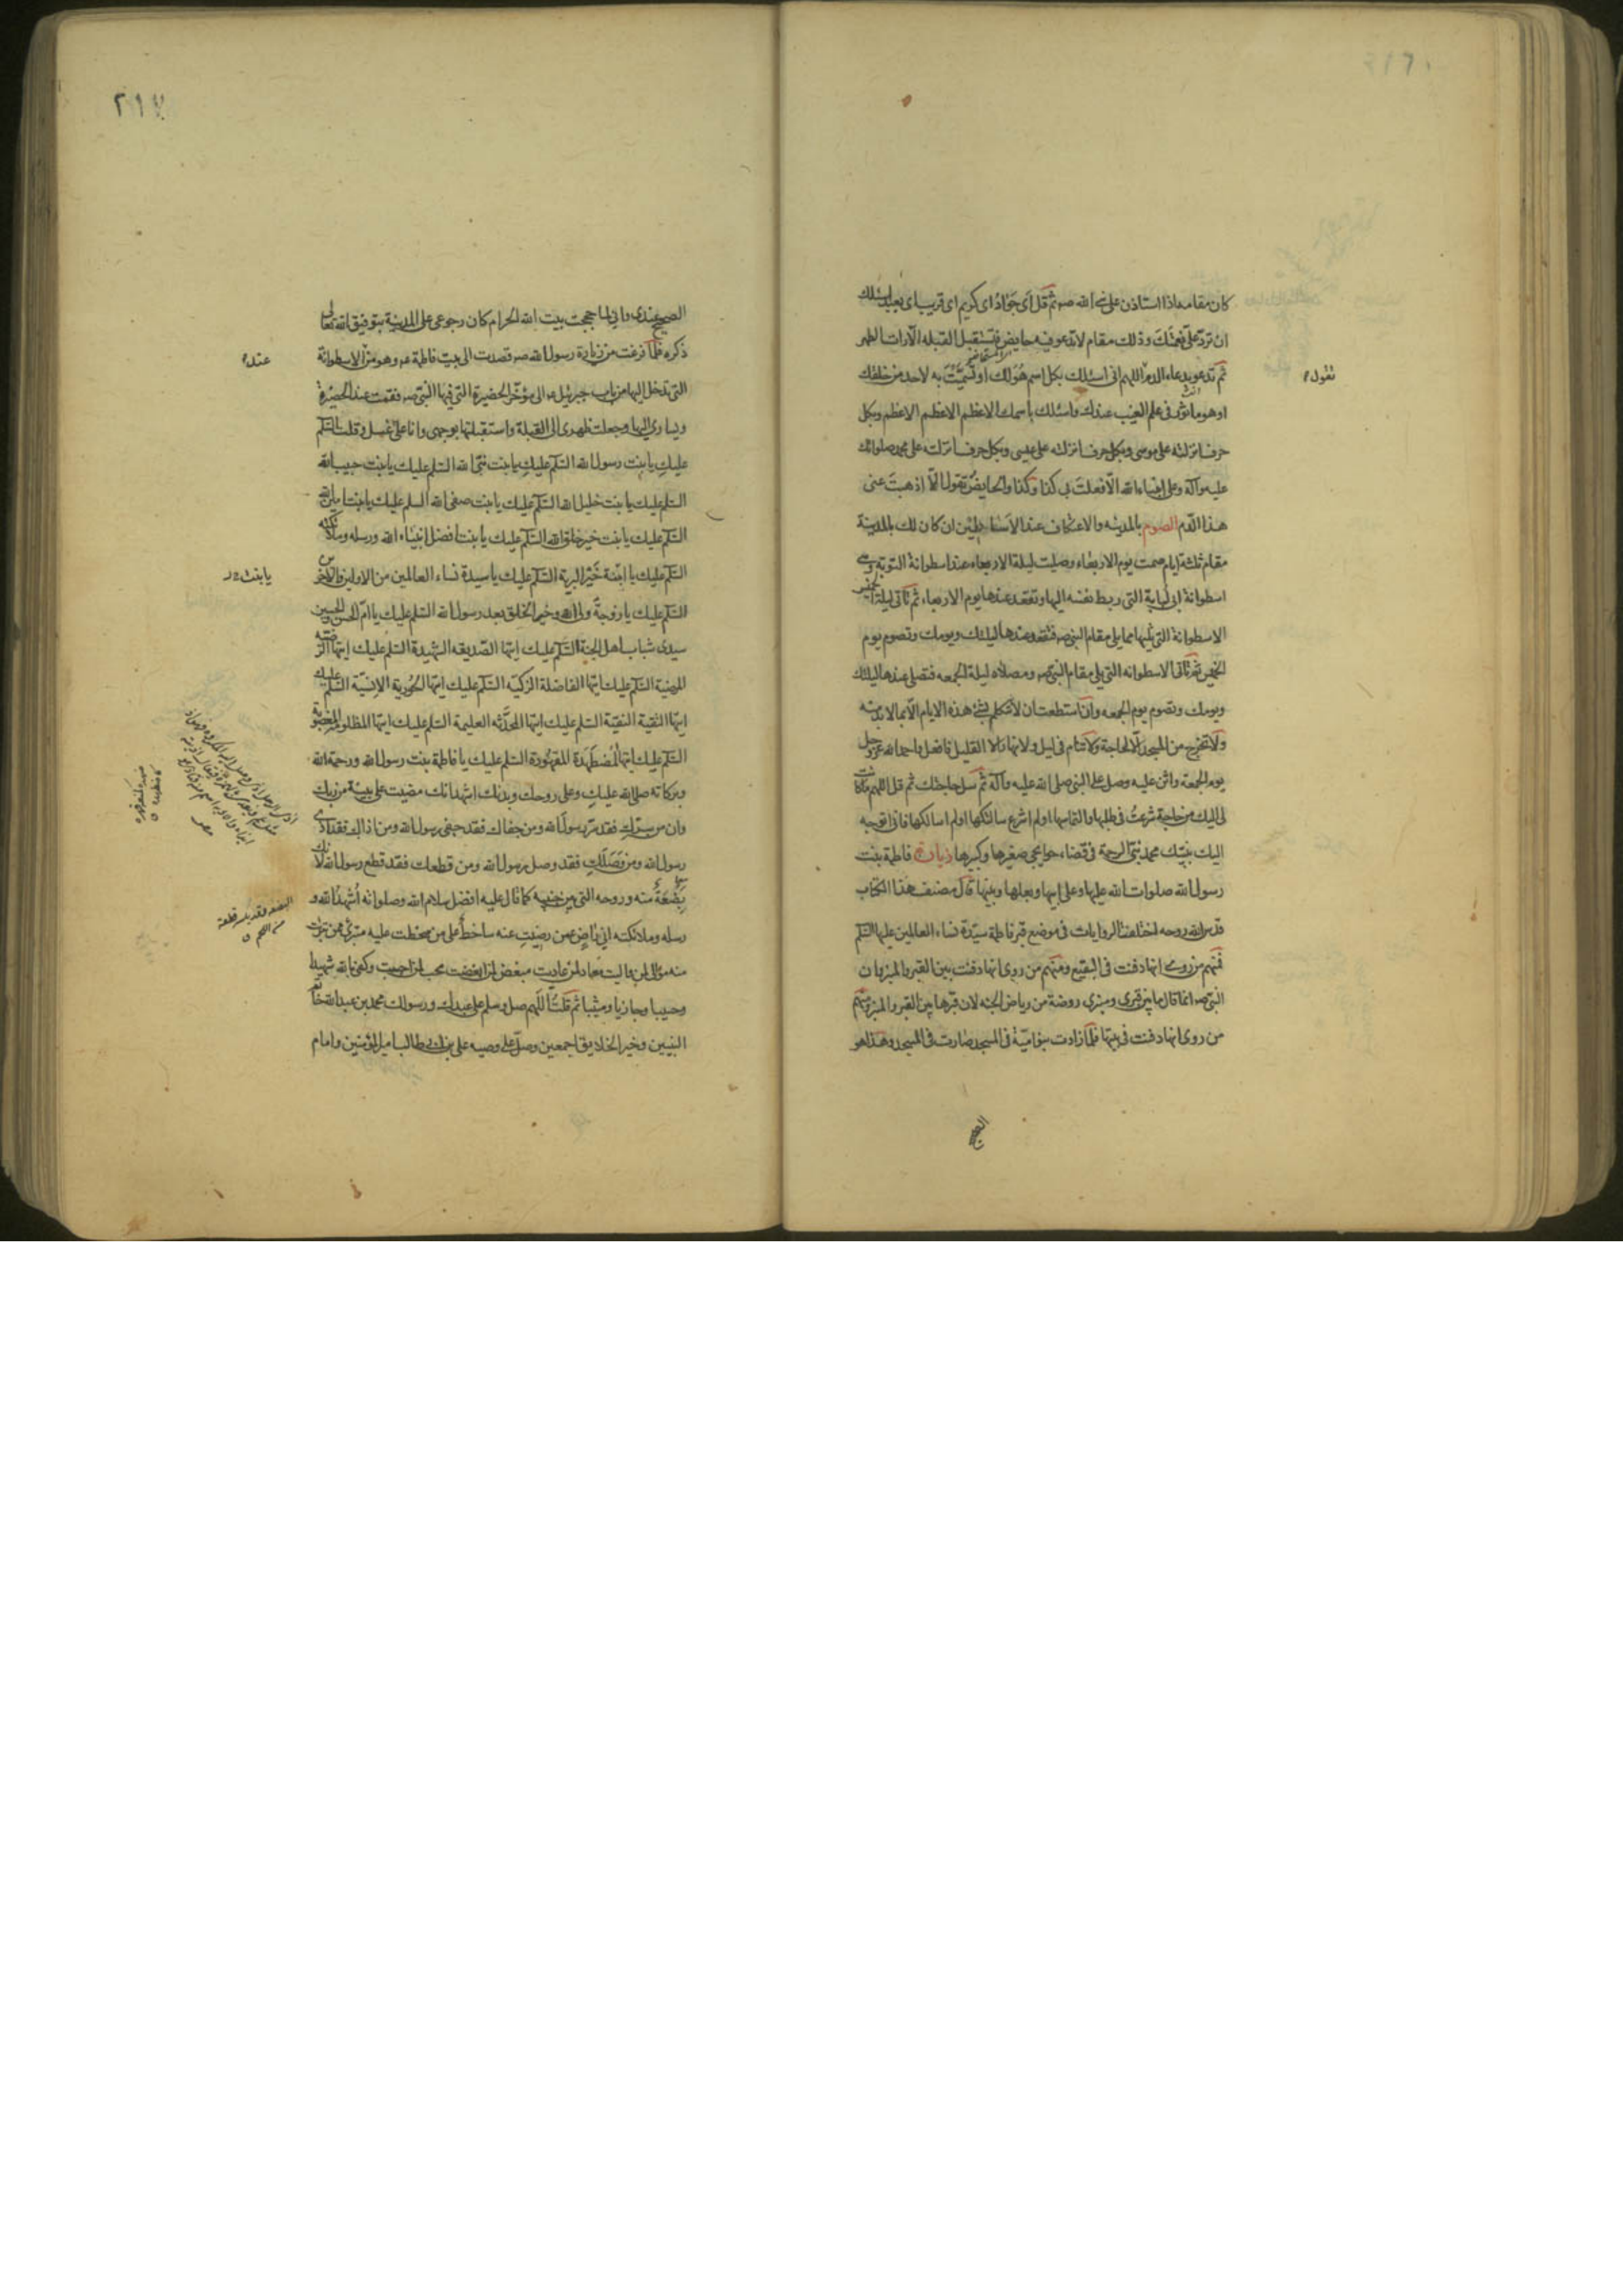 كان مقامه اذا استاذن على نبى الله صم ثم قل اى جواد اى كريم اى قريب اى بعيد اسئلك
ان ترد على نعمتك وذلك مقام لا تدعو فيه حايض فتستقبل القبله الا رات الطهر
ثم تدعو بدعاء الدم اللهم انى اسئلك بكل اسم هو لك او تسميت به لاحد من خلقك
تقول
او هو ماثور فى علم الغيب عندك واسئلك باسمك الاعظم الاعظم الاعظم وبكل
حرف انزلته على موسى وبكل حرف انزلته على عيسى وبكل حرف انزلته على محمد صلواتك
عليه وآله وعلى انبياء الله الا فعلت بى كذا وكذا والحايض تقول الا اذهبت عنى
هذا الدم الصوم بالمدينه والاعتكاف عند الاساطين ان كان لك بالمدينة
مقام ثلثة ايام صمت يوم الاربعاء وصليت ليلة الاربعاء عند اسطوانة التوبة وهى
اسطوانة ابى لبابة التى ربط نفسه اليها وتقعد عندها يوم الاربعاء ثم تاتى ليلة الخميس
الاسطوانة التى تليها مما يلى مقام النبى صم فتقعد عندها ليلتك ويومك وتصوم يوم
الخميس ثم تاتى الاسطوانه التى يلى مقام النبى صم ومصلاه ليلة الجمعه فتصلى عندها ليلتك
ويومك وتصوم يوم الجمعه وان استطعت ان لا تتكلم بشئ هذه الايام الا بما لا بد منه
ولا تخرج من المسجد الا لحاجة ولا تنام فى ليل ولا نهار الا القليل فافعل واحمد الله عز وجل
يوم الجمعة واثن عليه وصل على النبى صلى الله عليه وآله ثم سل حاجتك ثم قل اللهم ما كانت
لى اليك من حاجة شرعت فى طلبها والتماسها او لم اشرع سالتكها او لم اسالكها فانى اتوجه
اليك بنبيك محمد نبى الرحمة فى قضاء حوايجى صغيرها وكبيرها زيارة فاطمة بنت
رسول الله صلوات الله عليها وعلى ابيها وبعلها وبنيها قال مصنف هذا الكتاب
قدس الله روحه اختلفت الروايات فى موضع قبر فاطمة سيدة نساء العالمين عليها السلم
فمنهم من روى انها دفنت فى البقيع ومنهم من روى انها دفنت بين القبر والمنبر وان
النبى صم انما قال ما بين قبرى ومنبرى روضة من رياض الجنه لان قبرها بين القبر والمنبر ومنهم
من روى انها دفنت فى بيتها فلما زادت بنو امية فى المسجد صارت فى المسجد وهذا هو
الصحيح
٢١٧
الصحيح عندى وانى لما حججت بيت الله الحرام كان رجوعى على المدينة بتوفيق الله تعالى
ذكره فلما فرغت من زيارة رسول الله صم قصدت الى بيت فاطمة عم وهو من الاسطوانة
عنده
التى تدخل اليها من باب جبرئيل عم الى مؤخر الحضيرة التى فيها النبى صم فقمت عند الحضيرة
ويسارى اليها وجعلت ظهرى الى القبلة واستقبلتها بوجهى وانا على غسل وقلت السلم
عليك يا بنت رسول الله السلم عليك يا بنت نبى الله السلم عليك يا بنت حبيب الله
السلم عليك يا بنت خليل الله السلم عليك يا بنت صفى الله السلم عليك يا بنت امين الله
السلم عليك يا بنت خير خلق الله السلم عليك يا بنت افضل انبياء الله ورسله وملائكته
السلم عليك يا ابنة خير البرية السلم عليك يا سيدة نساء العالمين من الاولين والاخرين
يا بنت
السلم عليك يا زوجة ولى الله وخير الخلق بعد رسول الله السلم عليك يا ام الحسن والحسين
سيدى شباب اهل الجنة السلم عليك ايتها الصديقه الشهيدة السلم عليك ايتها الرضية
المرضية السلم عليك ايتها الفاضلة الزكية السلم عليك ايتها الحورية الانسية السلم عليك
ايتها التقية النقية السلم عليك ايتها المحدثه العليمة السلم عليك ايتها المظلومة المغصوبة
السلم عليك ايتها المضطهدة المقهورة السلم عليك يا فاطمة بنت رسول الله ورحمة الله
وبركاته صلى الله عليك وعلى روحك وبدنك اشهد انك مضيت على بينة من ربك
وان من سرك فقد سر رسول الله ومن جفاك فقد جفى رسول الله ومن اذاك فقد اذى
رسول الله ومن وصلك فقد وصل رسول الله ومن قطعك فقد قطع رسول الله لانك
بضعة منه وروحه التى بين جنبيه كما قال عليه افضل سلام الله وصلواته اشهد الله و
رسله وملائكته انى راض عمن رضيت عنه ساخط على من سخطت عليه متبرئ ممن تبرئت
منه موال لمن واليت معاد لمن عاديت مبغض لمن ابغضت محب لمن احببت وكفى بالله شهيدا
وحسيبا وجازيا ومثيبا ثم قلت اللهم صل وسلم على عبدك ورسولك محمد بن عبد الله خاتم
النبيين وخير الخلايق اجمعين وصل على وصيه على بن ابى طالب امير المؤمنين وامام